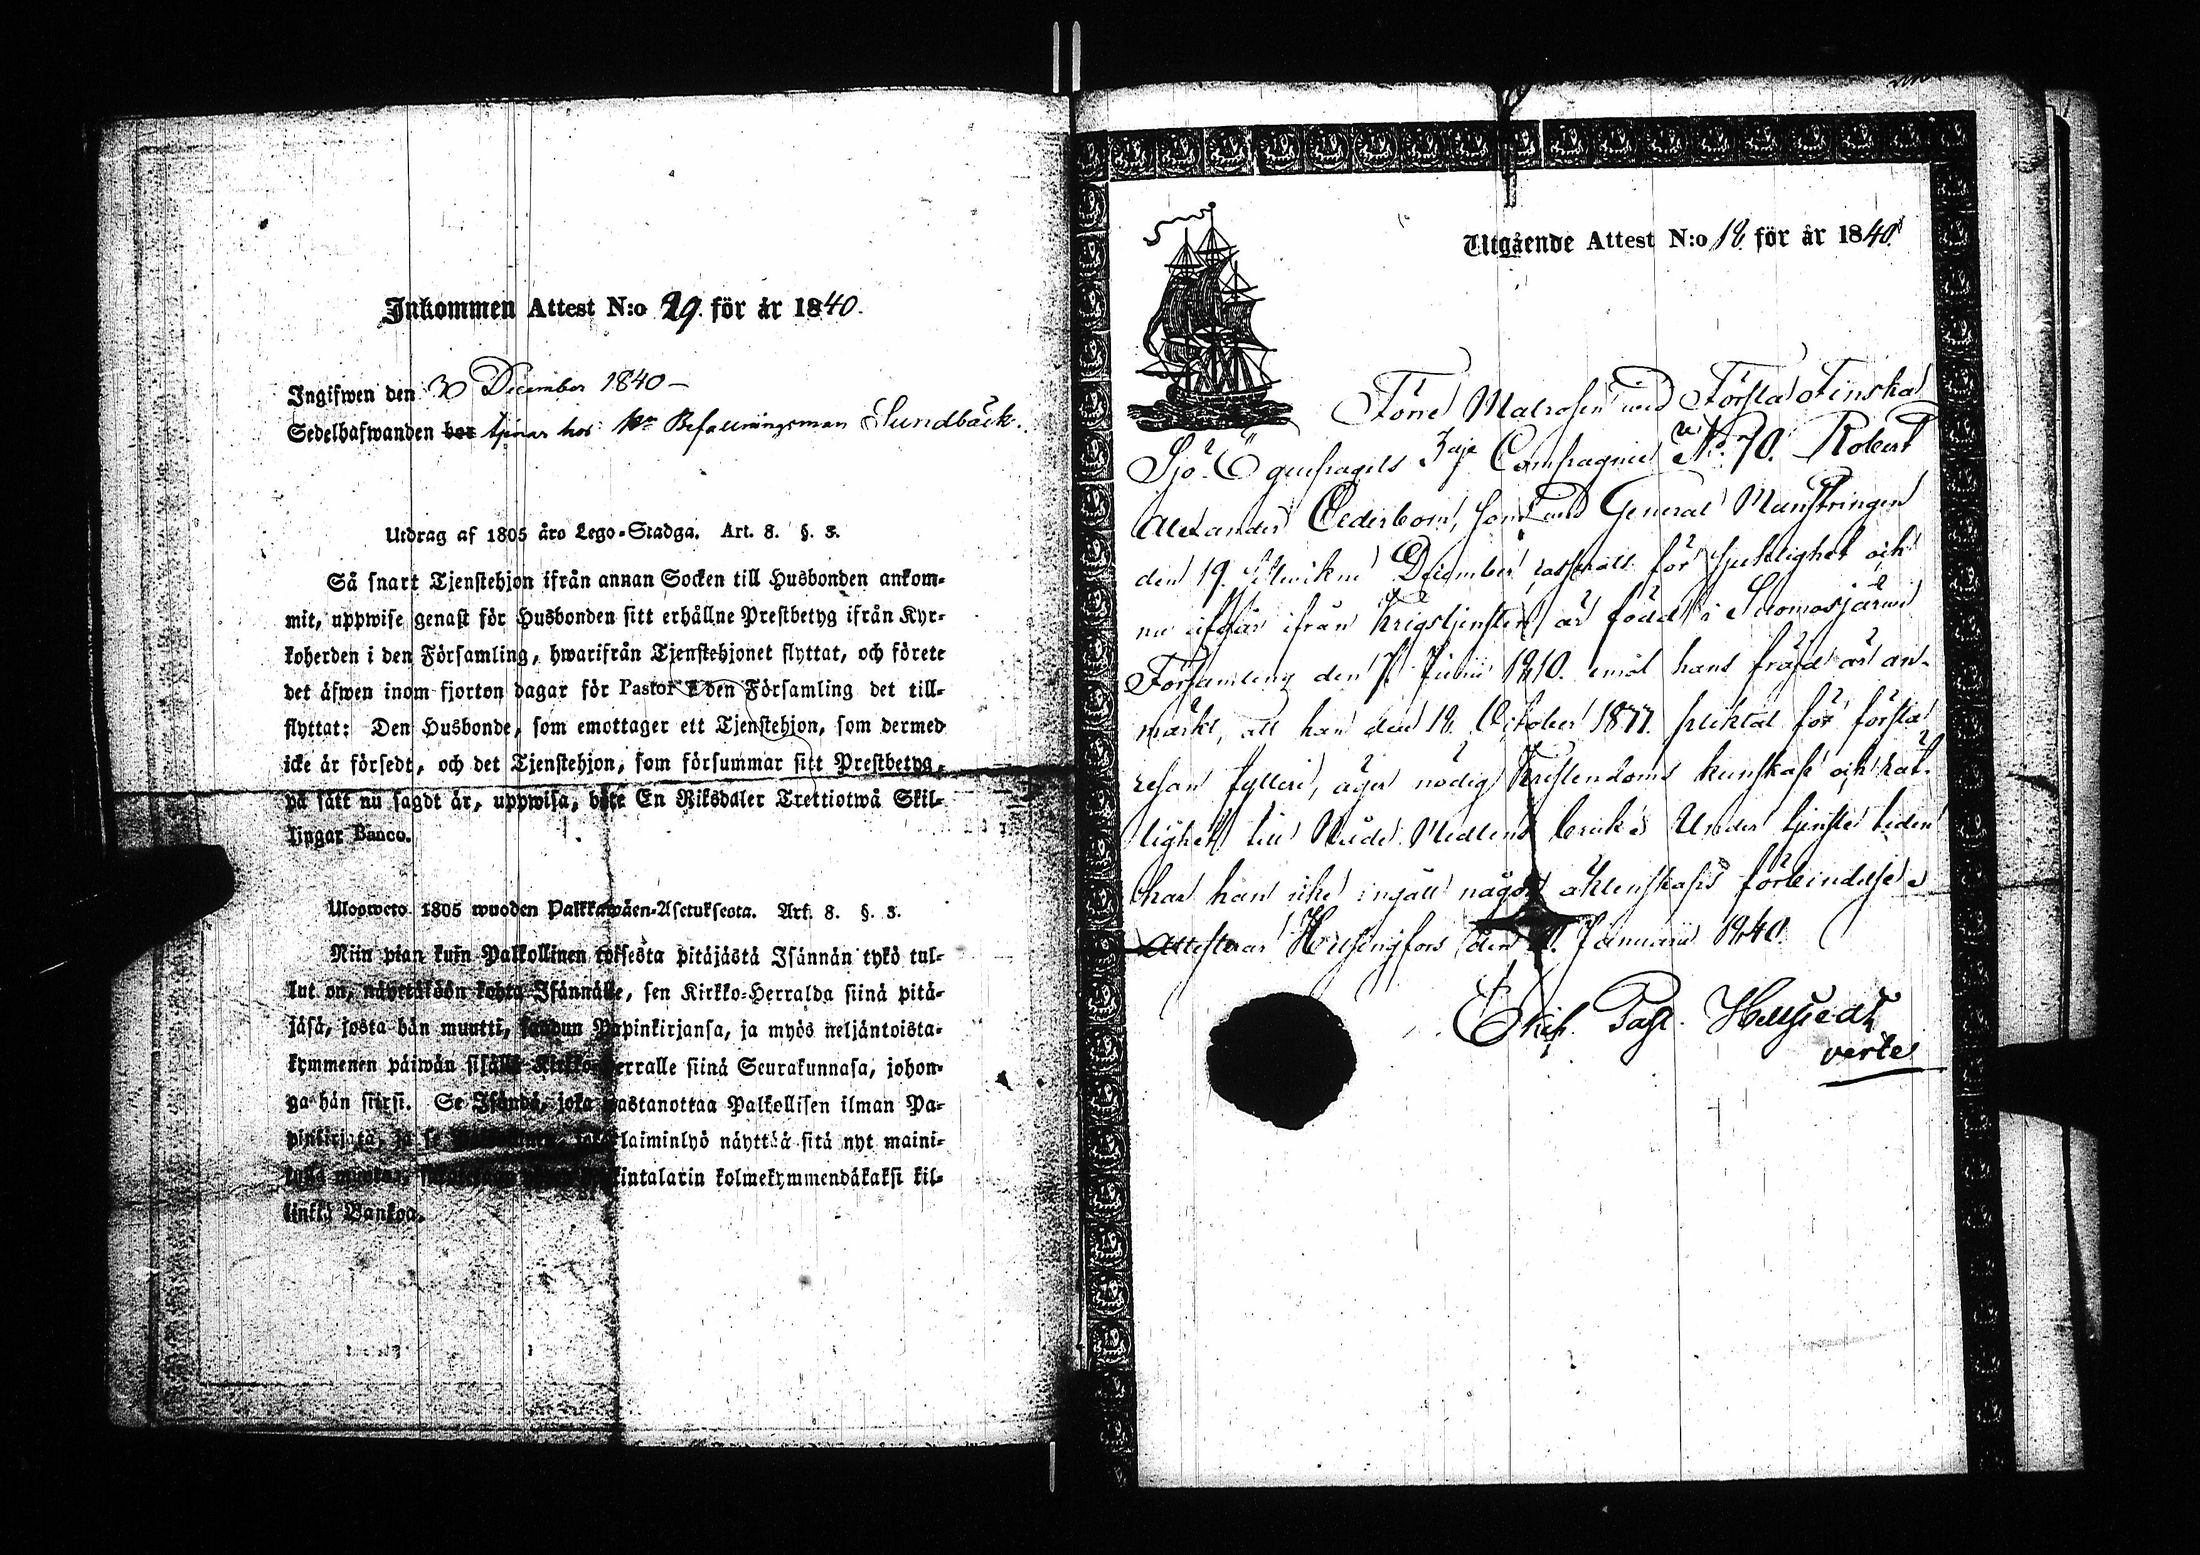 Inkommen Attest N:o 29. för år 1840.
Ingifwen den 30 December 1840 –
Sedelhafwanden bor tjenar hos Hr Befallningsman Sundbäck.
Utdrag af 1805 års Lego-Stadga. Art. 8. §. 3.
Så snart Tjenstehjon ifrån annan Socken till Husbonden ankom-
mit, uppwise genast för Husbonden sitt erhållne Prestbetyg ifrån Kyr-
koherden i den Församling, hwarifrån Tjenstehjonet flyttat, och förete
det äfwen inom fjorton dagar för Pastor i den Församling det till-
flyttat: Den Husbonde, som emottager ett Tjenstehjon, som dermed
icke är försedt, och det Tjenstehjon, som försummar sitt Prestbetyg,
på sätt nu sagdt är, uppwisa, böte En Riksdaler Trettiotwå Skil-
lingar Banco.
Ulosweto 1805 wuoden Palkkawäen-Asetuksesta. Art. 8. §. 3.
Niin pian kuin Palkollinen toisesta pitäjästä Isännän tykö tul-
lut on, näyttäköön kohta Isännälle, sen Kirkko-Herralda siinä pitä-
jäsä, josta hän muutti, saadun Papinkirjansa, ja myös neljäntoista-
kymmenen päiwän sisällä Kirkko-Herralle siinä Seurakunnasa, johon-
ga hän siirsi. Se Isändä, joka wastanottaa Palkollisen ilman Pa-
pinkirjata, ja se laiminlyö näyttää sitä nyt maini-
kintalarin kolmekymmendäkaksi kil-
linkiä Bankoa.
Utgående Attest N:o 18. för år 1840.
Förre Matrosen wid Första Finska
Sjö-Equipagets 3dje Compagnie No 70. Robert
Alexander Cederbom, som wid General Mönstringen
den 19. December casserats för sjuklighet och
nu afgår ifrån Krigstjensten, är född i Suomosjärwi
Församling den Junii 1810. emot hans fräjd är an-
märkt, att han den 18. October 1877. pliktat för första
resan fylleri, äger nödig Kristendoms kunskap och rät-
tighet till Nåde Medlens bruk. Under tjenste tiden
har han icke ingått något äktenskaps förbindelse.
Attesteras Helsingfors den Januarii 1840.
Past. Hellstedt
verte